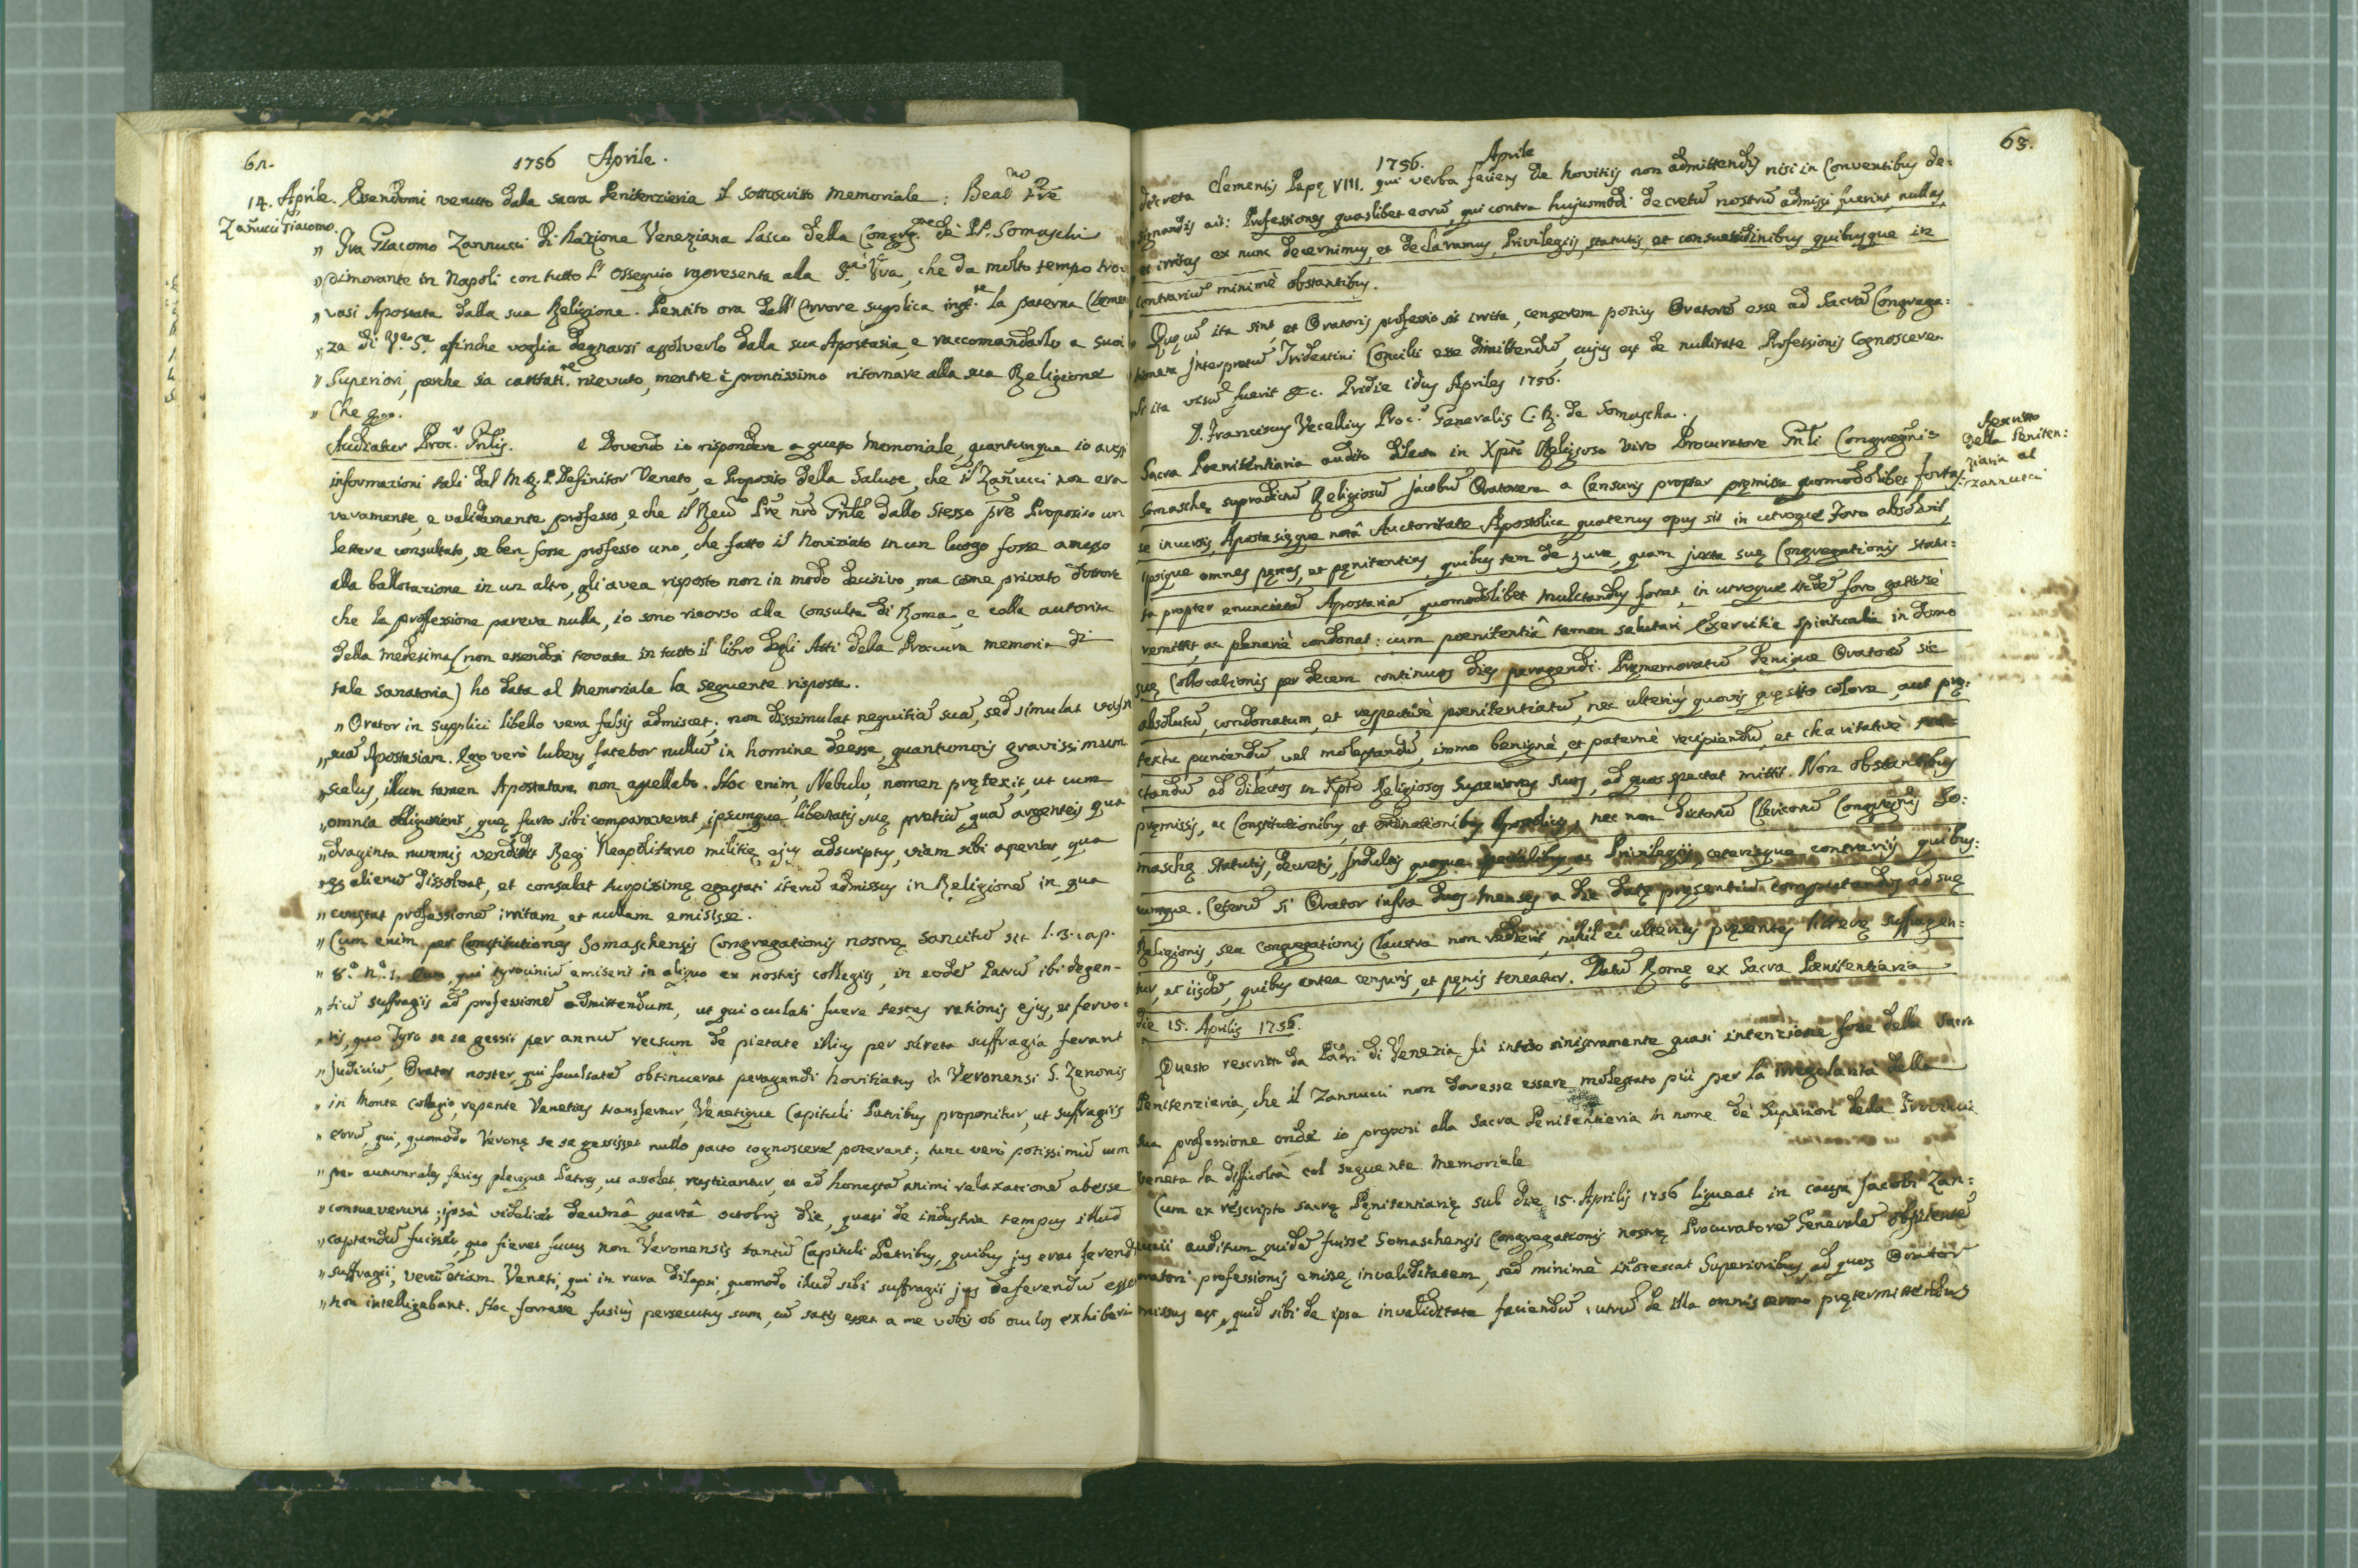 62.
1756 Aprile.
14. Aprile. Essendomi venuto dalla sacra Penitenzieria il sottoscritto memoriale: Beat.mo Pre
Zañucci Giacomo.
„ Fra Giacomo Zannucci di Nazione Veneziana Laico della Congreg.ne de PP. Somaschi
„ dimorante in Napoli con tutto l' ossequio rappresenta alla S.tà Vra, che da molto tempo tro
„ vasi Apostata dalla sua Religione. Pentito ora dell' Errore supplica la paterna Clemen
„ za di V.a S.a affinche voglia degnarsi assolverlo dalla sua Apostasia, e raccomandarlo a suoi
„ Superiori, perche sia caritati.te ricevuto, mentre è prontissimo ritornare alla sua Religione
„ Che
Audiatur Proc.r Gnlis. e dovendo io rispondere a questo memoriale, quantunque io avessi
informazioni tali dal M. R. P. Definitor Veneto, e Proposito della Salute, che il Zañucci non era
veramente, e validamente professo, e che il Rev.mo Pre nro Gnle dallo stesso pre Proposito un
lettere consultato, se ben fosse professo uno, che fatto il Noviziato in un luogo fosse amesso
alla ballotazione in un altro, gli avea risposto non in modo decisivo, ma come privato dottore
che la professione pareva nulla, io sono ricorso alla Consulta di Roma, e colla autorità
della medesima (non essendosi trovata in tutto il libro degli Atti della Procura memoria di
tale sanatoria) ho data al memoriale la seguente risposta.
„ Orator in supplici libello vera falsis admiscet; non dissimulat nequitiã suã, sed simulat
„ suã Apostasiam. Ego verò lubens fatebor nullũ in homine deesse, quantumvis gravissimum
„ scelus, illum tamen Apostatam non appellabo. Hoc enim, Nebulo, nomen prętexit, ut cum
„ omnia obliguriens, quę furto sibi comparaverat, ipsumque libertatis suę pretiũ, quã argenteis qua
„ draginta nummis vendidit Regi Neapolitano militię ejus adscriptus, viam sibi aperiat, qua
„ ęs alienũ dissolvat, et consulat turpissimę egestati iterũ admissus in Religionẽ in qua
„ constat professionẽ irritam, et nullam emisisse.
„ Cum enim per Constitutiones Somaschensis Congregationis nostrę sancitũ sit l. 3. cap.
„ 8.º n.º 1. eum, qui tyrociniũ emiserit in aliquo ex nostris collegiis, in eodẽ Patrũ ibi degen-
„ tiũ suffragiis ad professionẽ admittendum, ut qui oculati fuere testes rationis ejus, et fervo:
„ ris, quo Tyro se se gessit per annũ rectum de pietate illius per secreta suffragia ferant
„ Judiciũ, Orator noster, qui facultatẽ obtinuerat peragendi Novitiatus in Veronensi S. Zenonis
„ in Monte Collegio, repente Venetias transfertur, Venetique Capituli Patribus proponitur, ut suffragiis
„ eorũ, qui, quomodo Veronę se se gessisset nullo pacto cognoscere poterant; tunc verò potissimũ cum
„ per autumnales ferias plerique Patres, ut assolet, rusticantur, et ad honestã animi relaxationẽ abesse
„ consueverunt; ipsà videlicet decimâ quartâ octobris die, quasi de industria tempus illud
„ captandũ fuisset, quo fieret fucus non Veronensis tantũ Capituli Patribus, quibus jus erat ferendi
„ suffragii, verũ etiam Veneti, qui in rura dilapsi, quomodo illud sibi suffragii jus deferendũ esset
„ non intelligebant. Hoc fortasse fusiùs persecutus sum, cũ satis esset a me vobis ob oculos exhiberi
63.
1756. Aprile
decreta Clementis Papę VIII. qui verba faciens de Novitiis non admittendis nisi in Conventibus de:
signandis ait: Professiones quaslibet eorũ, qui contra hujusmodi decretũ nostrũ admissi fuerint, nullas,
et irritas ex nunc decernimus, et declaramus, Privilegiis, statutis, et consuetudinibus quibusque in
contrariũ minimè obstantibus.
Quę cũ ita sint, et Oratoris professio sit irrita, censerem potius Oratorẽ esse ad Sacrã Congrega:
tionem Interpretũ Tridentini Concilii esse dimittendũ, cujus est de nullitate Professionis Cognoscere.
Si ita visũ fuerit &c. Pridie idus Apriles 1756.
D. Franciscus Vecellius Proc.r Generalis C. R. de Somascha.
Rescritto
della Peniten:
ziaria al
Zannucci
Sacra Poenitentiaria audito dilecto in Xpto Religioso viro Procuratore Gnli Congregnis
Somaschę supradictũ Religiosũ Jacobũ Oratorem a Censuris propter pręmissa quomodolibet fortas:
se incursis, Apostasięque notâ Auctoritate Apostolica quatenus opus sit in utroque Foro absolvit,
ipsique omnes pęnas, et pęnitentias, quibus tam de jure, quam juxta suę Congregationis statu:
ta propter enunciatã Apostasiã, quomodolibet mulctandus foret, in utroque itidẽ foro gratiosè
remittit, ac plenariè condonat: cum poenitentiâ tamen salutari Exercitia spiritualia in domo
suę Collocationis per decem continuos dies peragendi. Pręmemoratũ denique Oratorẽ sic
absolutũ, condonatum, et respectivè poenitentiatũ, nec ulteriùs quovis quęsito colore, aut prę:
textu puniendũ, vel molestandũ, immo benignè, et paternè recipiendũ, et charitativè trac
tandũ ad dilectos in Xpto Religiosos Superiores suos, ad quos spectat mittit. Non obstantibus
pręmissis, ac Constitutionibus, et ordinationibus Apostolicis, nec non dictorũ Clericorũ Congregnis So:
maschę statutis, decretis, Indultis, quoque specialibus, ac Privilegiis, ceterisque contrariis quibus:
cumque. Ceterũ si Orator infra duos menses a die datę pręsentiũ computandos ad suę
Religionis, seu Congregationis Claustra non redierit, nihil ei ulteriùs pręsentes litterę suffragen:
tur, et iisdẽ, quibus antea censuris, et pęnis teneatur. Datũ Romę ex Sacra Poenitentiaria
die 15. Aprilis 1756.
Questo rescritto da Padri di Venezia fù inteso sinistramente quasi intenzione fosse della Sacra
Penitenzieria, che il Zannucci non dovesse essere molestato più per la irregolarità della
sua professione onde io proposi alla Sacra Penitenzieria in nome de Superiori della Provincia
Veneta la difficoltà col seguente Memoriale
Cum ex rescripto sacrę Pęnitentiarię sub die 15. Aprilis 1756 liqueat in causa Jacobi Zan:
nucii auditum quidẽ fuisse Somaschensis Congregationis nostrę Procuratorẽ Generalẽ obsistente
oratori professionis emissę invaliditatem, sed minimè innotescat Superioribus, ad quos Orator
missus est, quid sibi de ipsa invaliditate faciendũ; utrũ de illa omnis sermo prętermittendus